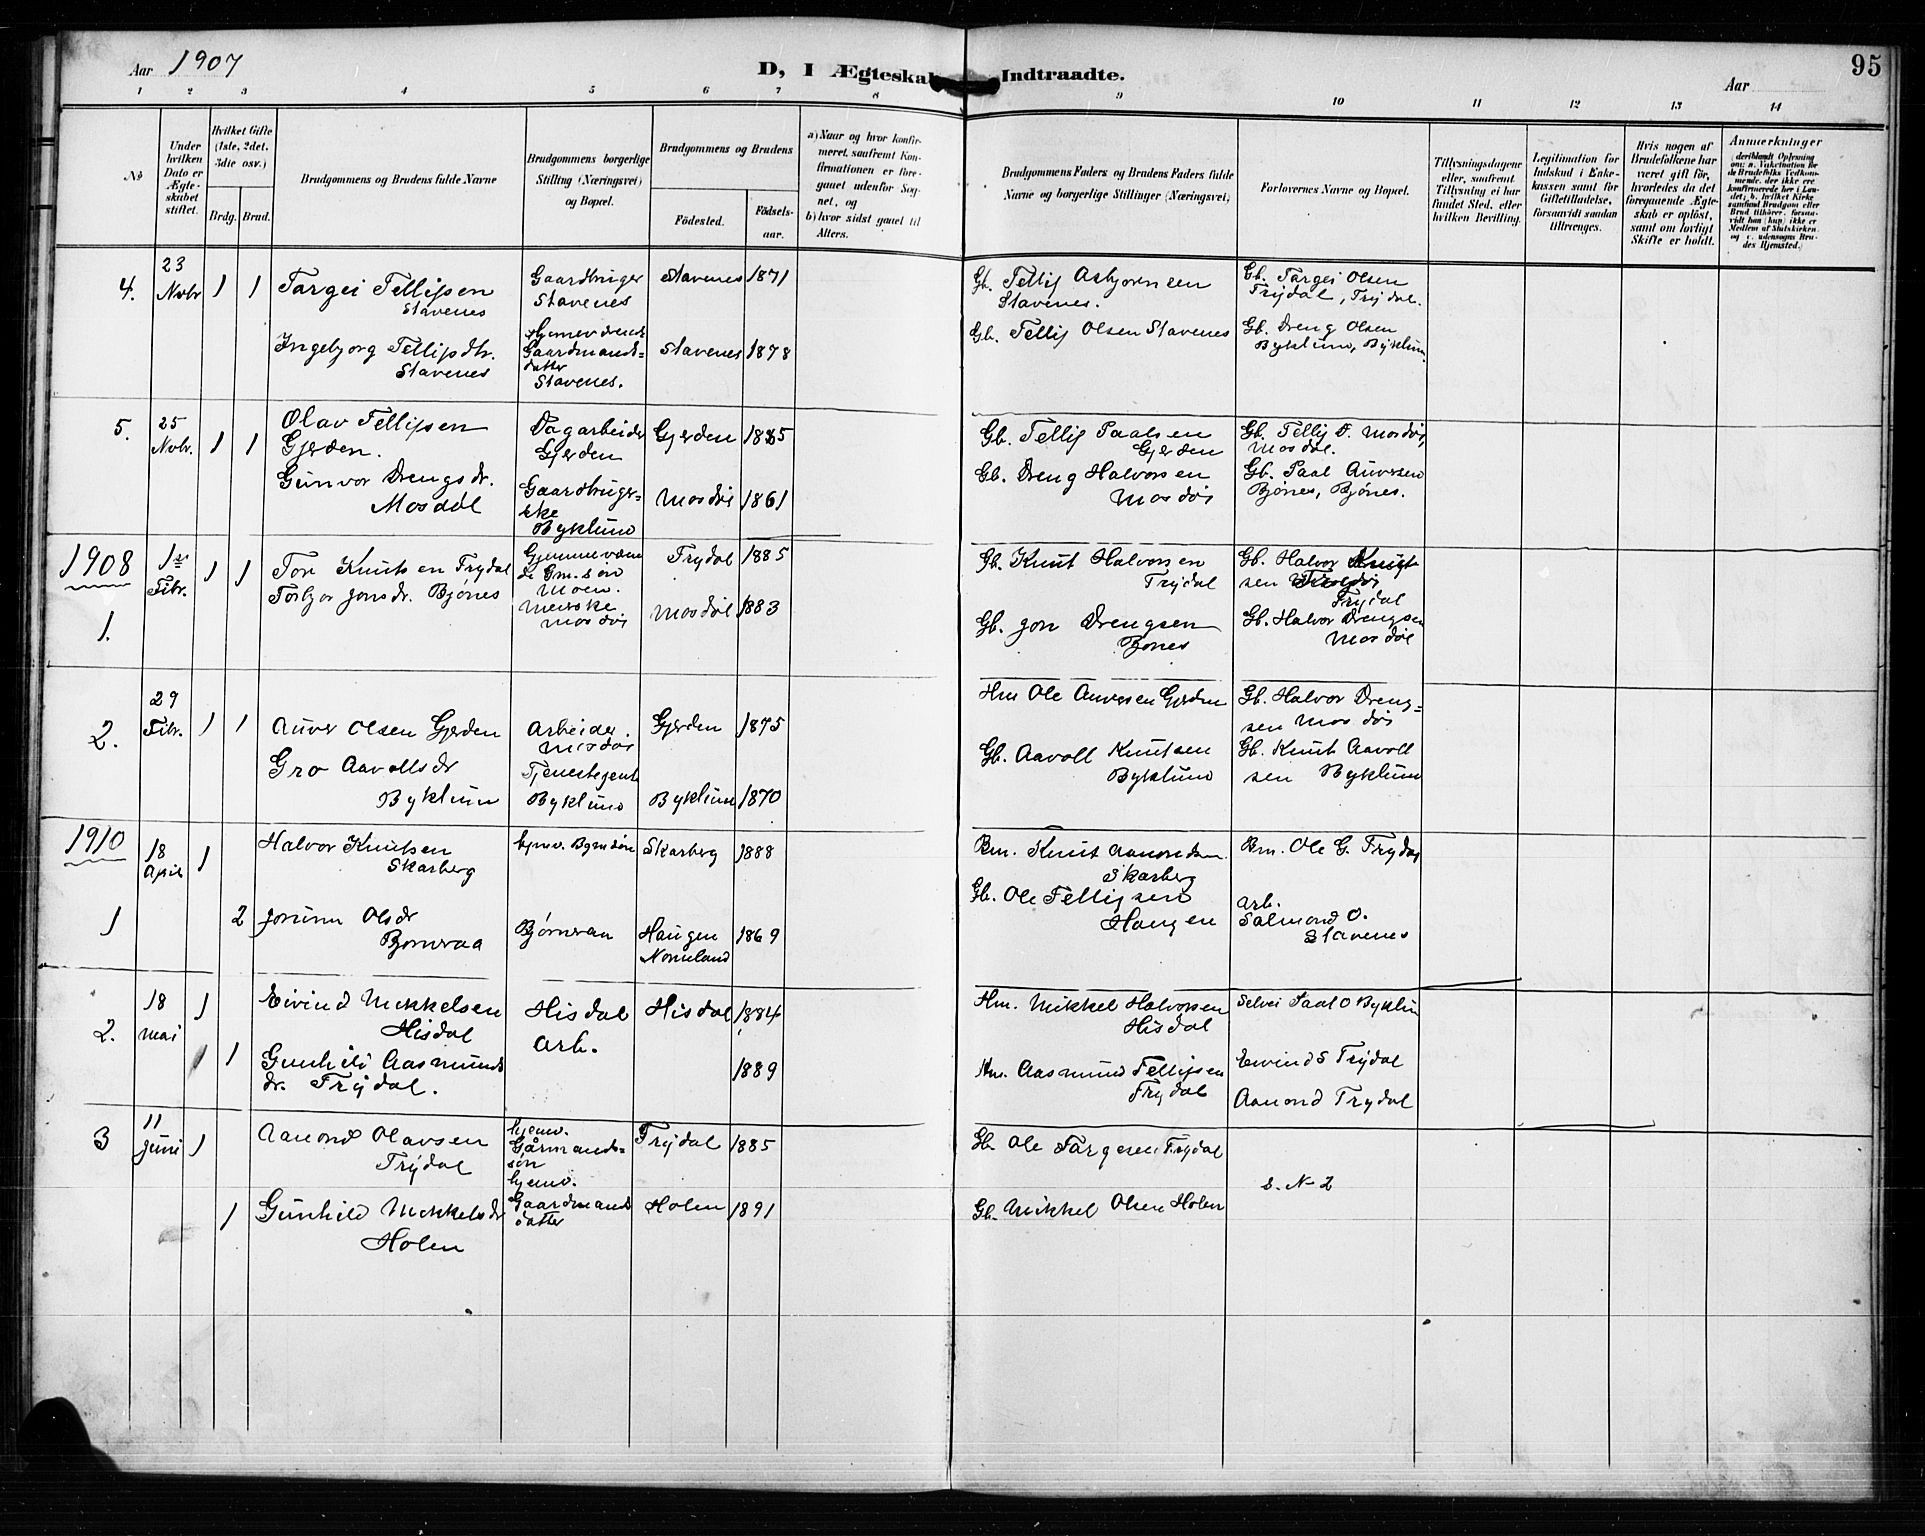 Aar 1907
D, I Ægteskab Indtraadte.
Aar
95
1 2 3 4 5 6 7 8 9 10 11 12 13 14
No
Under hvilken Dato er Ægteskabet stiftet.
Hvilket Gifte (1ste, 2det, 3die osv.)
Brdg. Brud.
Brudgommens og Brudens fulde Navne
Brudgommens borgerlige Stilling (Næringsvei) og Bopæl.
Brudgommens og Brudens
Födested. Födsels-aar.
a) Naar og hvor konfirmeret, saafremt Konfirmationen er foregaaet udenfor Sognet, og
b) hvor sidst gaaet til Alters.
Brudgommens Faders og Brudens Faders fulde Navne og borgerlige Stillinger (Næringsvei)
Forlovernes Navne og Bopæl.
Tillysningsdagene eller, saafremt Tillysning ei har fundet Sted, efter hvilken Bevilling.
Legitimation for Indskud i Enkekassen samt for Giftetilladelse, forsaavidt saadan tiltrænges.
Hvis nogen af Brudefolkene har været gift för, hvorledes da det foregaaende Ægteskab er oplöst, samt om lovligt Skifte er holdt.
Anmærkninger
4. 23 Novbr 1 1
Targei Tellefsen Stavenes
Gaardbruger Stavenes
Stavenes 1871
Gb. Tellef Asbjørnsen Stavenes.
Gb. Targei Olsen Trydal, Trydal.
Ingebjorg Tellefsdtr. Stavenes
Hjemeværende Gaardmandsdatter Stavenes.
Stavenes 1878
Gb. Tellef Olsen Stavenes
Gb. Dreng Olsen Byklum, Byklum
5. 25 Novbr. 1 1
Olav Tellefsen Gjerden.
Dagarbeider Gjerden
Gjerden
Gb. Tellef Paalsen Gjerden
Gb. Tellef D. Mosdøl, Mosdøl.
Gunvor Drengsdr. Mosdøl
Gaardbrugerske Byklum
Mosdøl 1861
Gb. Dreng Halvorsen Mosdøl
Gb. Paal Auversen Bjönes, Bjönes.
1908
1. 1ste Febr. 1 1
Tore Knutsen Trydal
Gm. søn Moen.
Trydal 1885
Gb. Knut Halvorsen Trydal
Gb. Halvor Knutsen Trydal
Torbjor Jonsdr. Bjönes
Meierske Mosdøl
Mosdøl 1883
Gb. Jon Drengsen Bjones
Gb. Halvor Drengsen Mosdöl
2. 29 Febr. 1 1
Auver Olsen Gjerden
Arbeider. Mosdøl
Gjerden 1875
Hm Ole Auversen Gjerden
Gb. Halvor Drengsen Mosdøl
Gro Aavollsdr Byklum
Tjenestegent Byklum
Byklum 1870
Gb. Aavoll Knutsen Byklum
Gb. Knut Aavollsen Byklum
1910
1 18 April 1
Halvor Knutsen Skarberg
hjmv. Bgmdsøn
Skarberg 1888
Bm. Knut Aanondsen Skarberg
Bm. Ole G. Trydal
2
Jorunn Olsdr Bjornraa
Bjørnraa
Haugen Nomeland 1869
Gb. Ole Tellefsen Haugen
arb. Salmond O. Stavenes
2. 18 mai 1
Eivind Mikkelsen Hisdal
Hisdal arb.
Hisdal 1884
Hm. Mikkel Halvorsen Hisdal
Paal O Byklum
1
Gunhild Aasmundsdr. Trydal.
1889
Hm. Aasmund Tellefsen Trydal
Eivind S Trydal
Aanond Trydal
3 11 Juni 1
Aanond Olavsen Trydal
hjemv. Gårmandssøn
Trydal 1885
Gb. Ole Targesen Trydal
s. No 2
1
Gunhild Mikkelsdr Holen
hjemv. Gaardmandsdatter
Holen 1891
Gb. Mikkel Olsen Holen